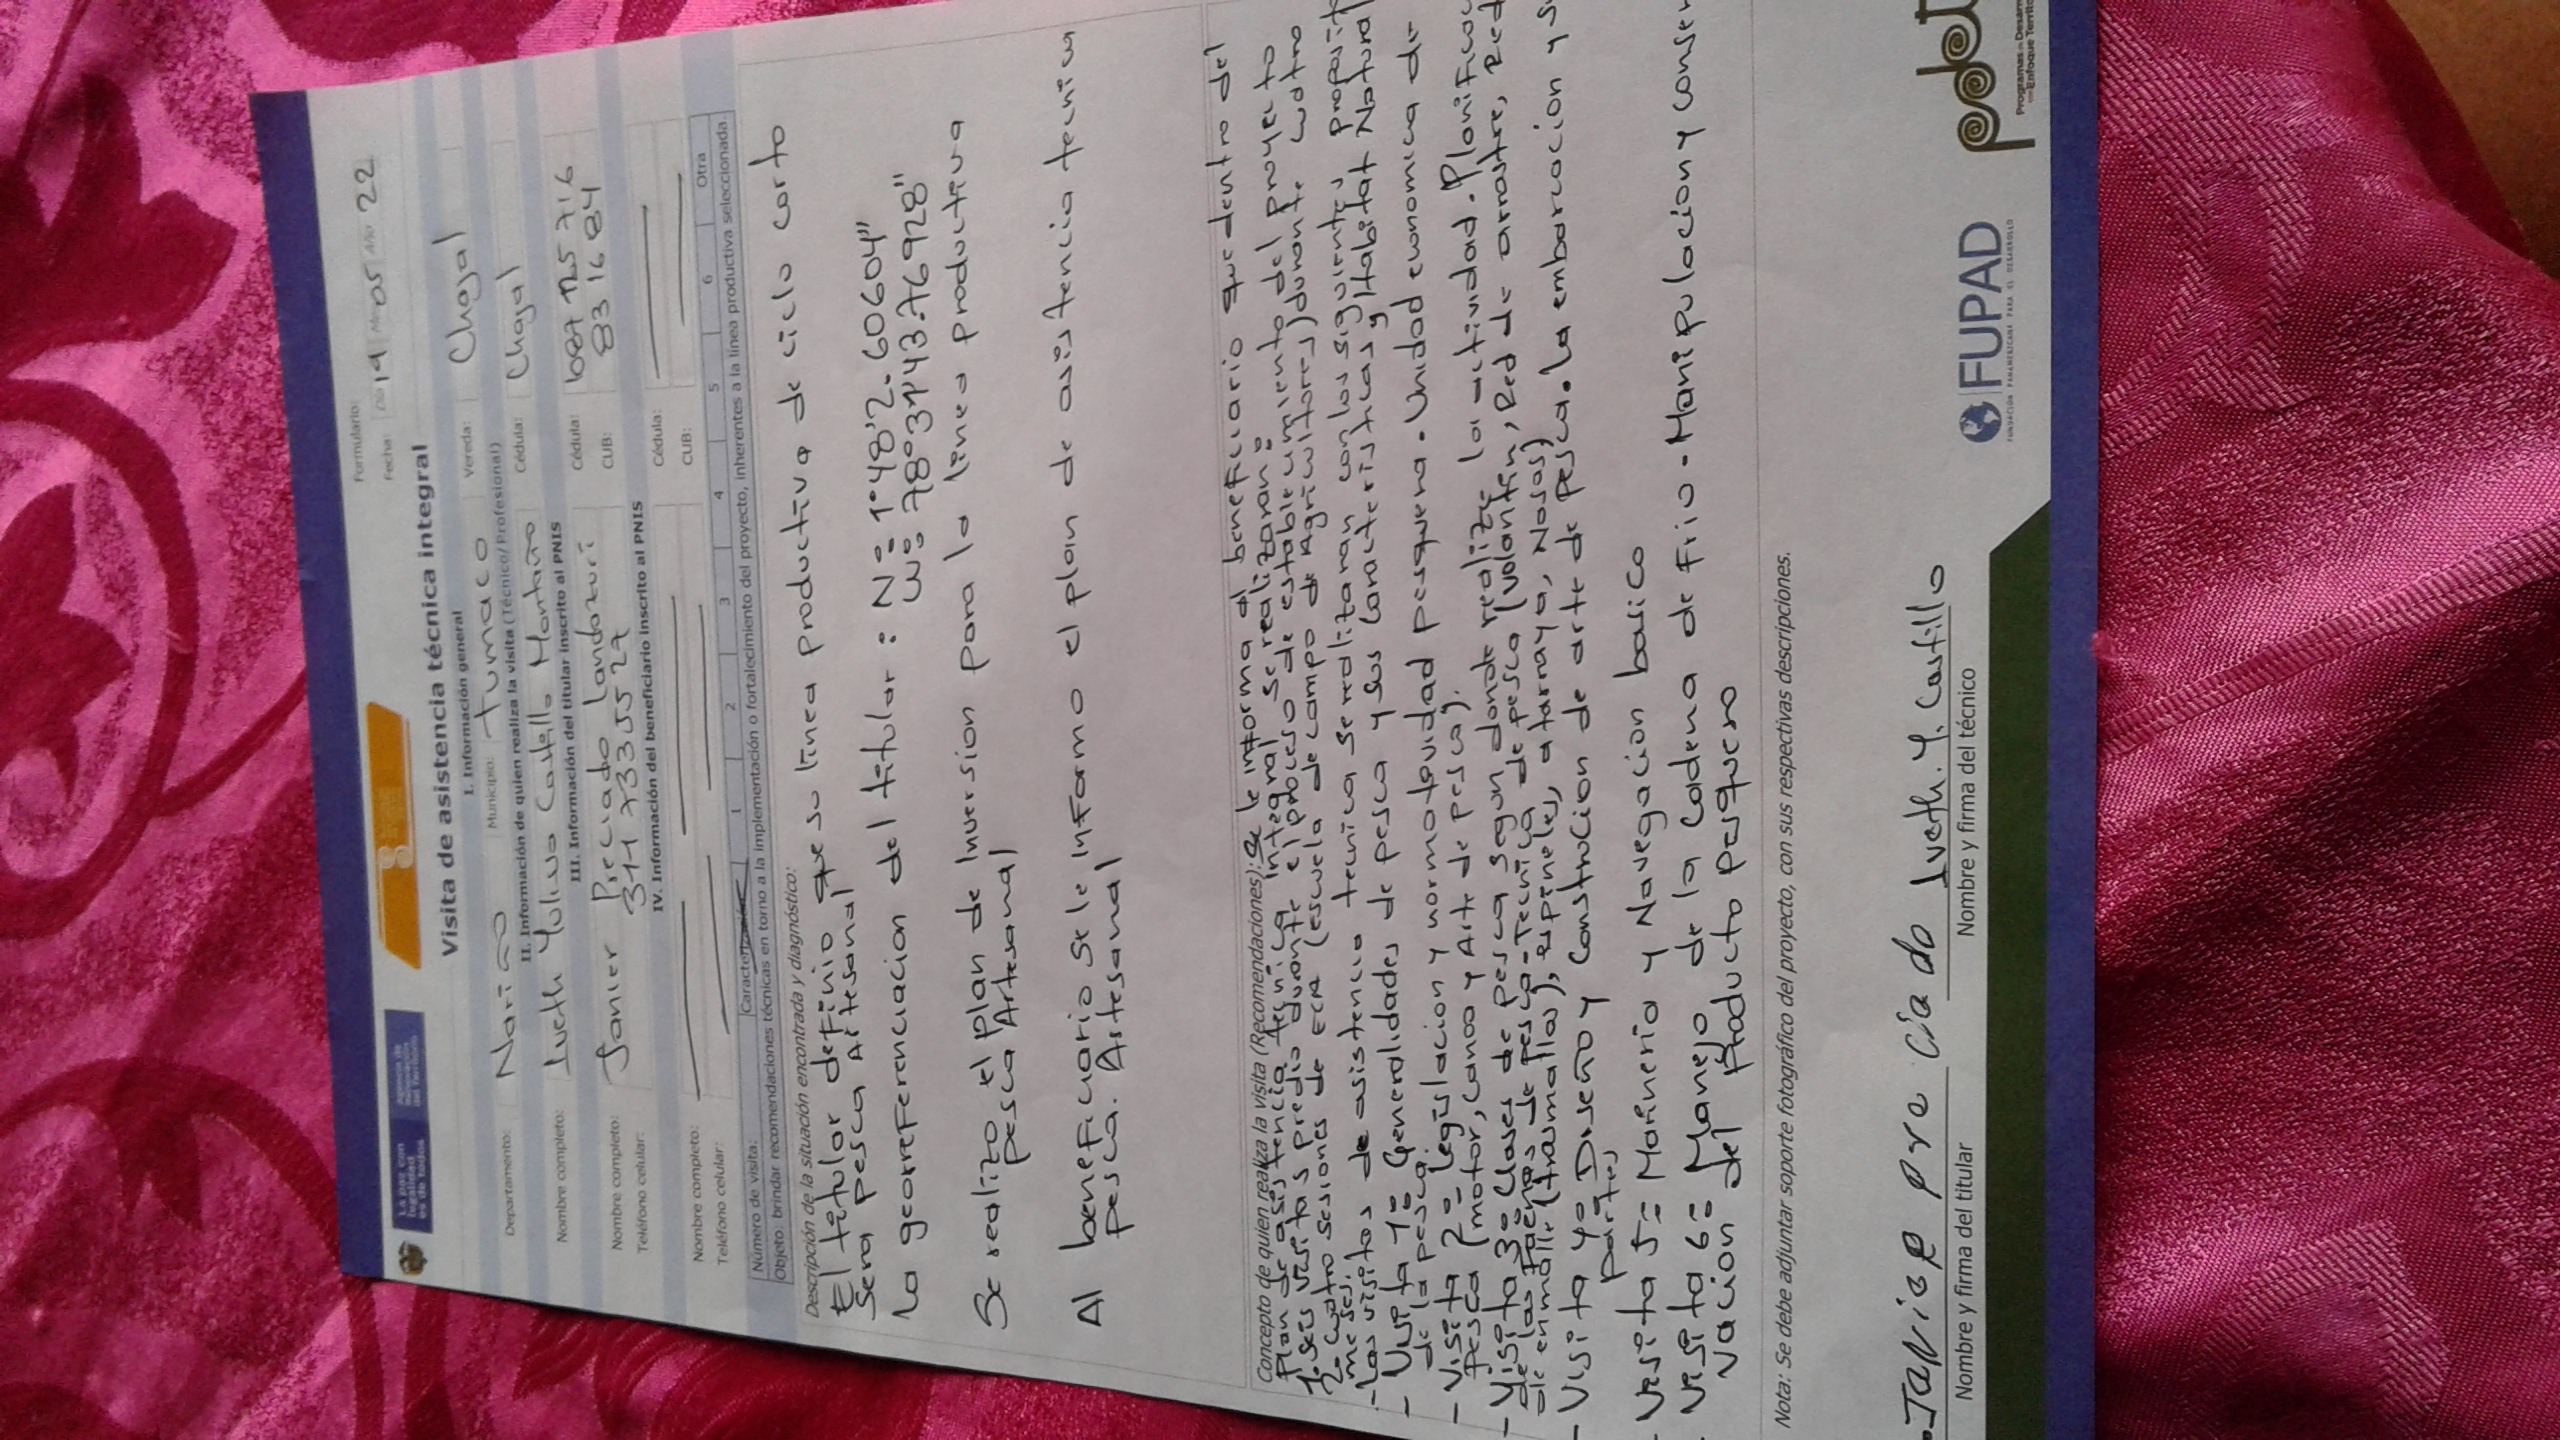 La paz con
legalidad
es de todos
Agencia de
Renovación
del Territorio
Formulario:
Fecha: Día 19 Mes 05 Año 22
Visita de asistencia técnica integral
I. Información general
Departamento: Nariño Municipio: Tumaco Vereda: Chajal
II. Información de quien realiza la visita (Técnico/Profesional)
Nombre completo: Iveth Yulisa Castillo Montaño Cédula: Chajal
III. Información del titular inscrito al PNIS
Nombre completo: Janier Preciado Landazuri Cédula: 1087 125 716
Teléfono celular: 311 733 55 27 CUB: 83 16 84
IV. Información del beneficiario inscrito al PNIS
Nombre completo: Cédula:
Teléfono celular: CUB:
Número de visita: Caracterización 1 2 3 4 5 6 Otra
Objeto: brindar recomendaciones técnicas en torno a la implementación o fortalecimiento del proyecto, inherentes a la línea productiva seleccionada.
Descripción de la situación encontrada y diagnóstico:
El titular definio que su linea productiva de ciclo corto
sera pesca Artesanal
La georreferenciacion del titular: N: 1°48'2.60604"
W: 78°31'43.76928"
Se realizo el plan de Inversion para la linea productiva
pesca Artesanal
Al beneficiario se le informo el plan de asistencia tecnica
pesca. Artesanal
Concepto de quien realiza la visita (Recomendaciones): Se le informa al beneficiario que dentro del
Plan de asistencia tecnica integral se realizaran:
1. Seis visitas predio durante el proceso de establecimiento del proyecto
2. Cuatro sesiones de ECA (escuela de campo de Agricultores) durante cuatro
meses.
- Las visitas de asistencia tecnica se realizaran con los siguientes proposit
- Visita 1: Generalidades de pesca y sus caracteristicas y Habitat Natural
de la pesca.
- Visita 2: legislacion y normatividad pesquera. Unidad economica de
Pesca (motor, canoa y Arte de pesca).
- Visita 3: Clases de pesca segun donde realize la actividad. Planificac
de las faenas de pesca-Tecnica de pesca (volantin, Red de arrastre, Red
de enmalle (trasmallo), espineles, atarraya, Nasas)
- Visita 4: Diseño y Construcion de arte de Pesca. La embarcacion y su
partes
- Visita 5: Marineria y Navegacion basico
- Visita 6: Manejo de la cadena de frio. Manipulacion y conser
vacion del producto pesquero
Nota: Se debe adjuntar soporte fotográfico del proyecto, con sus respectivas descripciones.
Janier preciado
Nombre y firma del titular
Iveth. Y. Castillo
Nombre y firma del técnico
FUPAD
FUNDACIÓN PANAMERICANA PARA EL DESARROLLO
pdet
Programas de Desarro
con Enfoque Territo